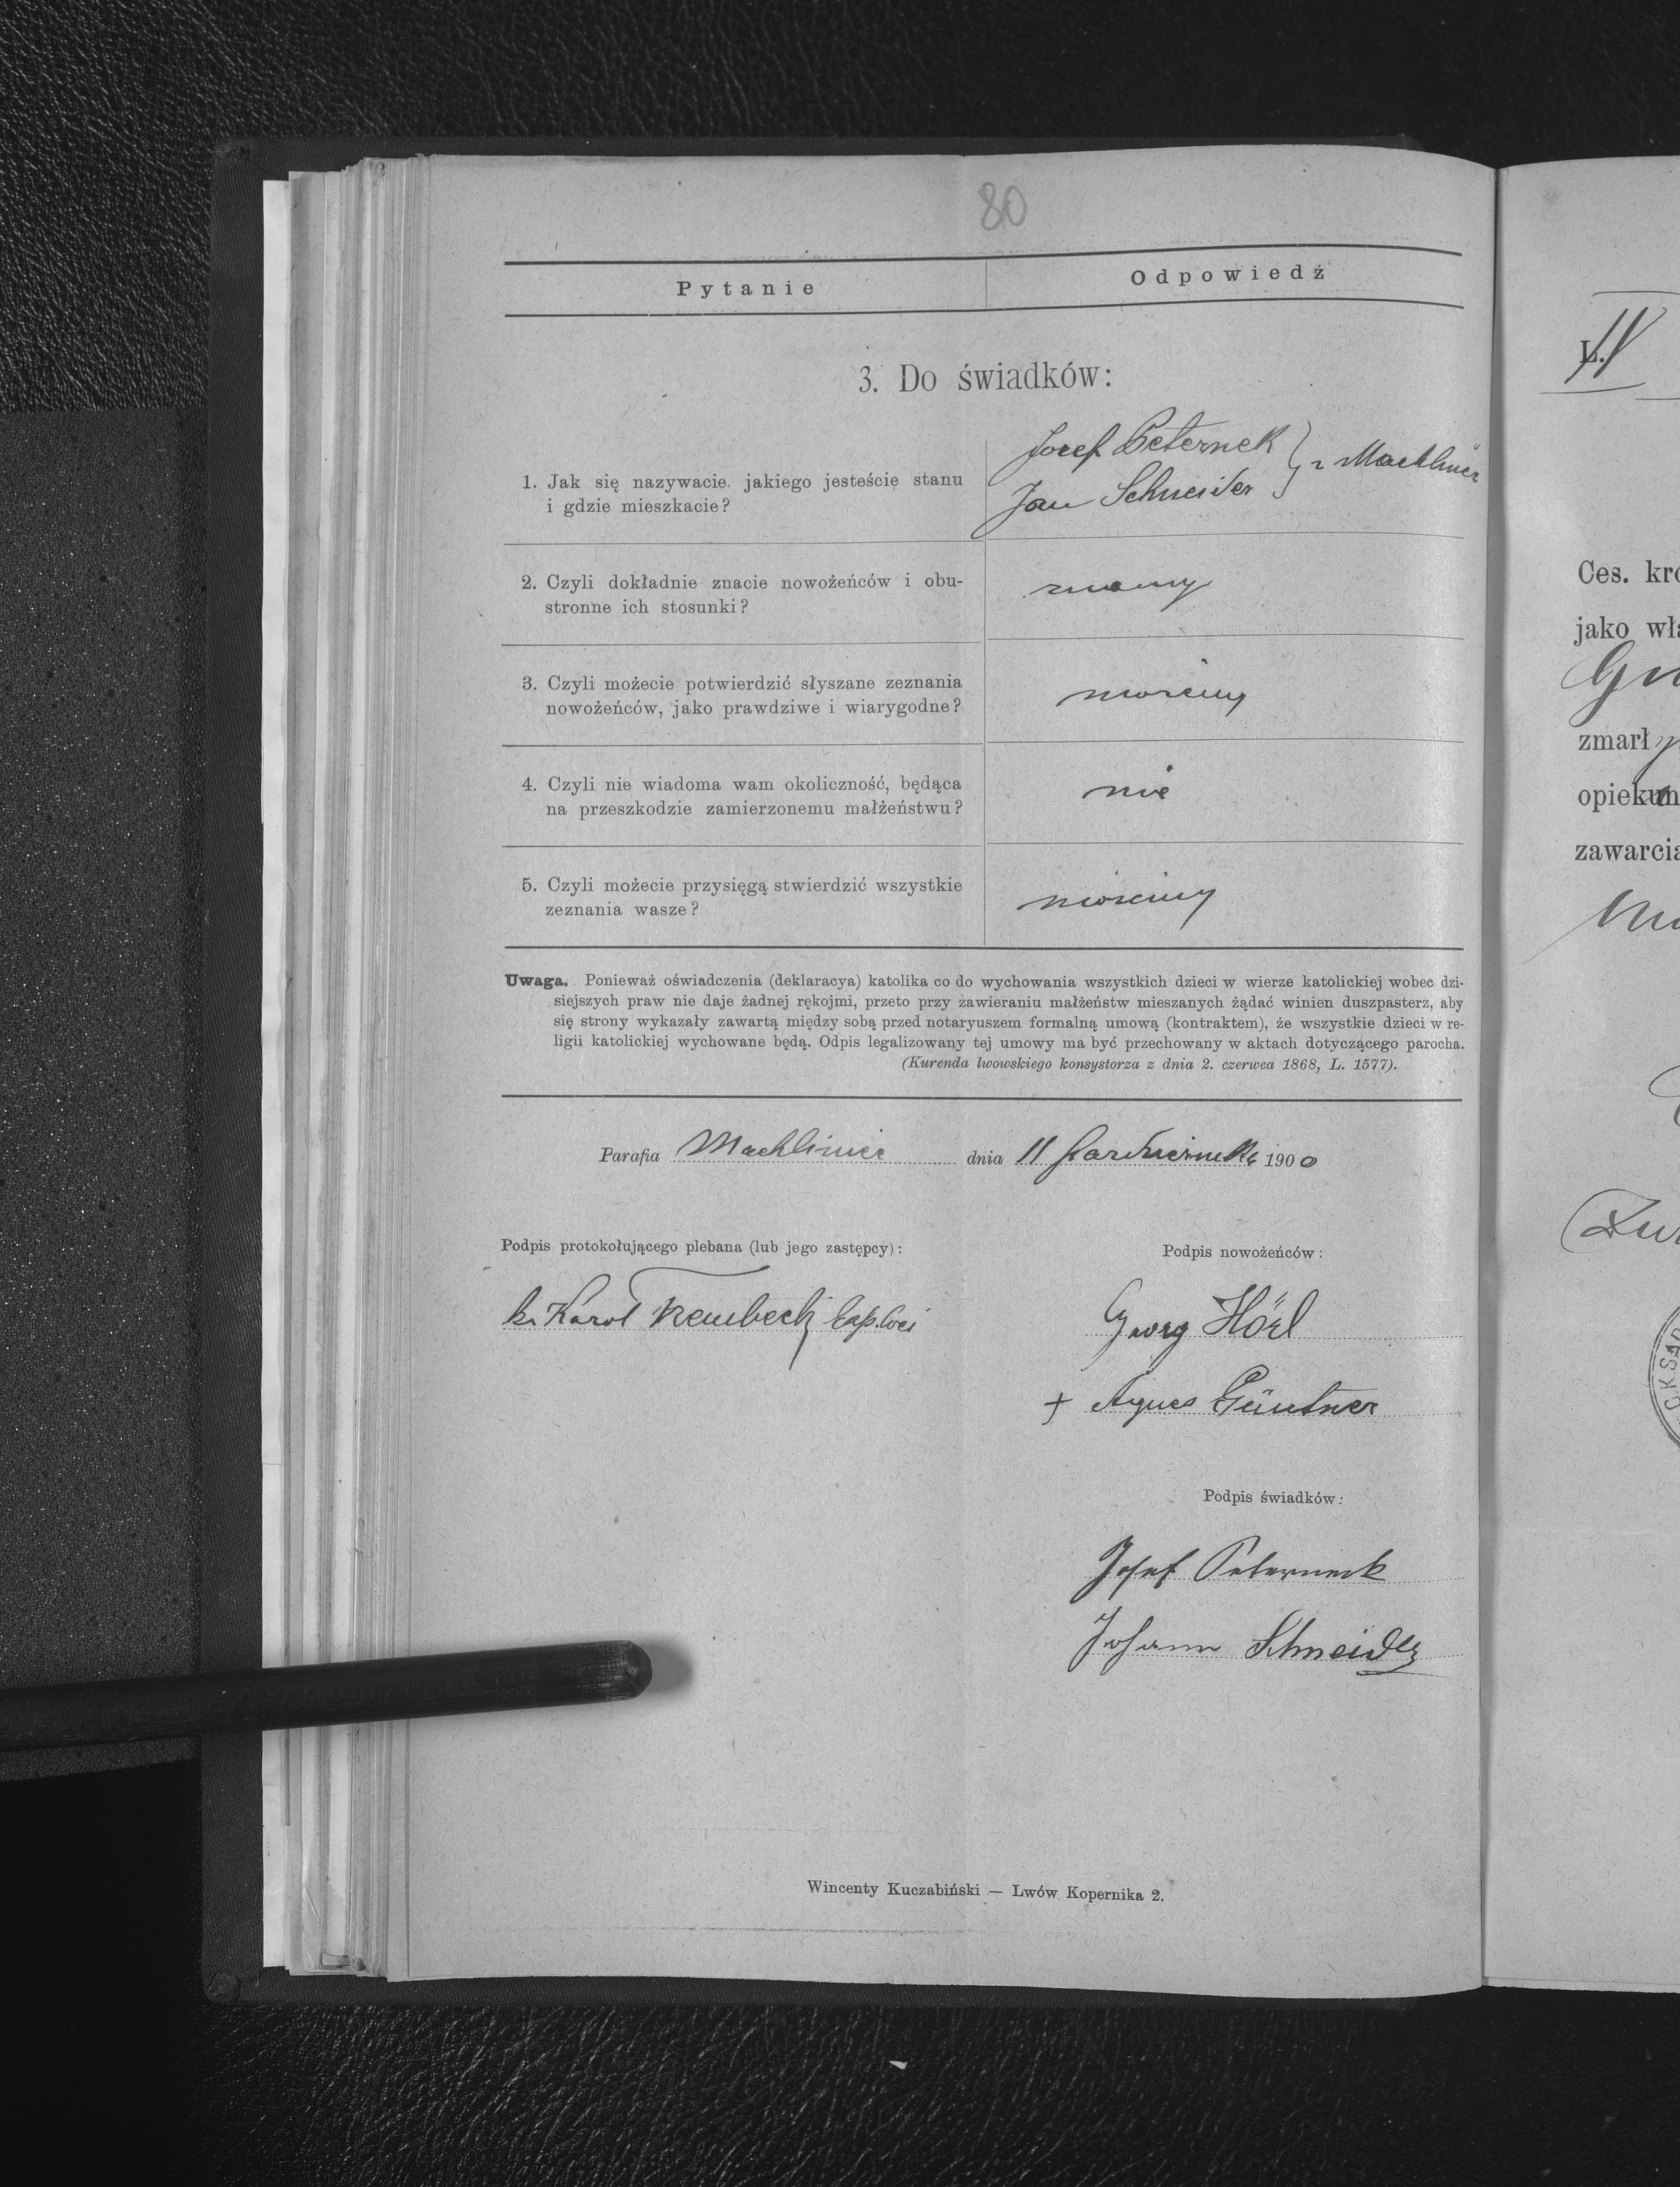 80
Pytanie
Odpowiedź
3. Do świadków:
Josef Peternek
Jan Schneider } z Machliniec
1. Jak się nazywacie. jakiego jesteście stanu
i gdzie mieszkacie?
2. Czyli dokładnie znacie nowożeńców i obu-
stronne ich stosunki?
znamy
3. Czyli możecie potwierdzić słyszane zeznania
nowożeńców, jako prawdziwe i wiarygodne?
możemy
4. Czyli nie wiadoma wam okoliczność, będąca
na przeszkodzie zamierzonemu małżeństwu?
nie
5. Czyli możecie przysięgą stwierdzić wszystkie
zeznania wasze?
możemy
Uwaga. Ponieważ oświadczenia (deklaracya) katolika co do wychowania wszystkich dzieci w wierze katolickiej wobec dzi-
siejszych praw nie daje żadnej rękojmi, przeto przy zawieraniu małżeństw mieszanych żądać winien duszpasterz, aby
się strony wykazały zawartą między sobą przed notaryuszem formalną umową (kontraktem), że wszystkie dzieci w re-
ligii katolickiej wychowane będą. Odpis legalizowany tej umowy ma być przechowany w aktach dotyczącego parocha.
(Kurenda lwowskiego konsystorza z dnia 2. czerwca 1868, L. 1577).
Parafia Machliniec dnia 11 Października 1900
Podpis protokołującego plebana (lub jego zastępcy):
Podpis nowożeńców:
ks Karol
Georg Hörl
+ Agnes Güntner
Podpis świadków:
Josef Peterneck
Johann Schneider
Wincenty Kuczabiński — Lwów Kopernika 2.
L.
Ces. kró
jako wła
zmarł
opiekun
zawarcia